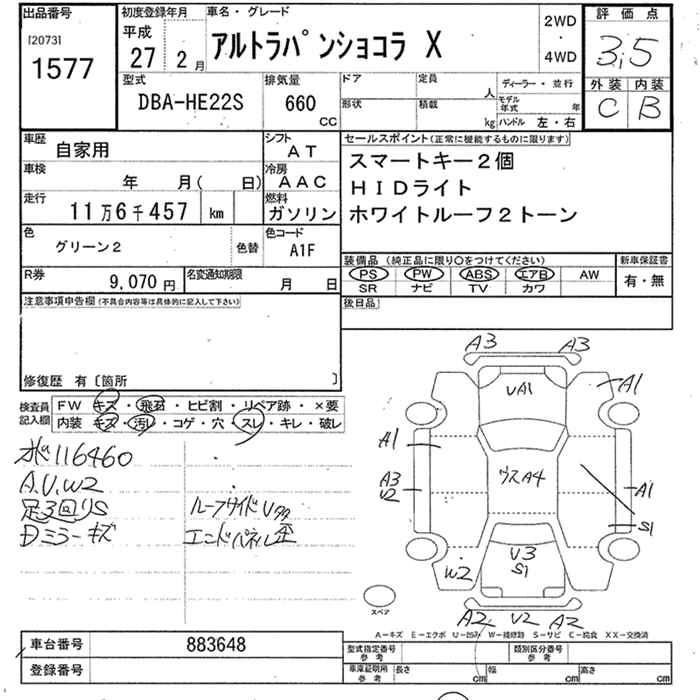 出品番号 初度登録年月 車名・グレード 2WD ・ 4WD 評価点
[2073]
1577
平成 27 2月 アルトラパンショコラ X 3.5
型式 排気量 ドア 定員 人 ディーラー・並行 外装 内装
DBA-HE22S 660 CC 形状 積載 kg モデル年式 年 ハンドル 左・右 C B
車歴 自家用 シフト AT セールスポイント(正常に機能するものに限ります)
車検 年 月( 日) 冷房 AAC スマートキー2個
HIDライト
走行 11万6千457 km 燃料 ガソリン ホワイトルーフ2トーン
色 グリーン2 色替 色コード A1F
装備品(純正品に限り○をつけてください) 新車保証書
R券 9,070円 名変通知期限 月 日 PS PW ABS エアB AW 有・無
SR ナビ TV カワ
注意事項申告欄(不具合内容等は具体的に記入して下さい) 後日品
修復歴 有〔箇所 〕
検査員記入欄 FW キズ・飛石・ヒビ割・リペア跡・×要
内装 キズ・汚レ・コゲ・穴・スレ・キレ・破レ
116460
A.U.W2
足3回りS ルーフサイドU多
Dミラーキズ エンドパネル歪
A3 A3
UA1 A1
A1
A3 U2 ウスA4 A1
S1
V3 S1
W2
スペア
A2 V2 A2
A－キズ E－エクボ U－凹み W－補修跡 S－サビ C－腐食 XX－交換済
車台番号 883648 型式指定番号 参考 類別区分番号 参考
登録番号 車庫証明用 参考 長さ cm 幅 cm 高さ cm